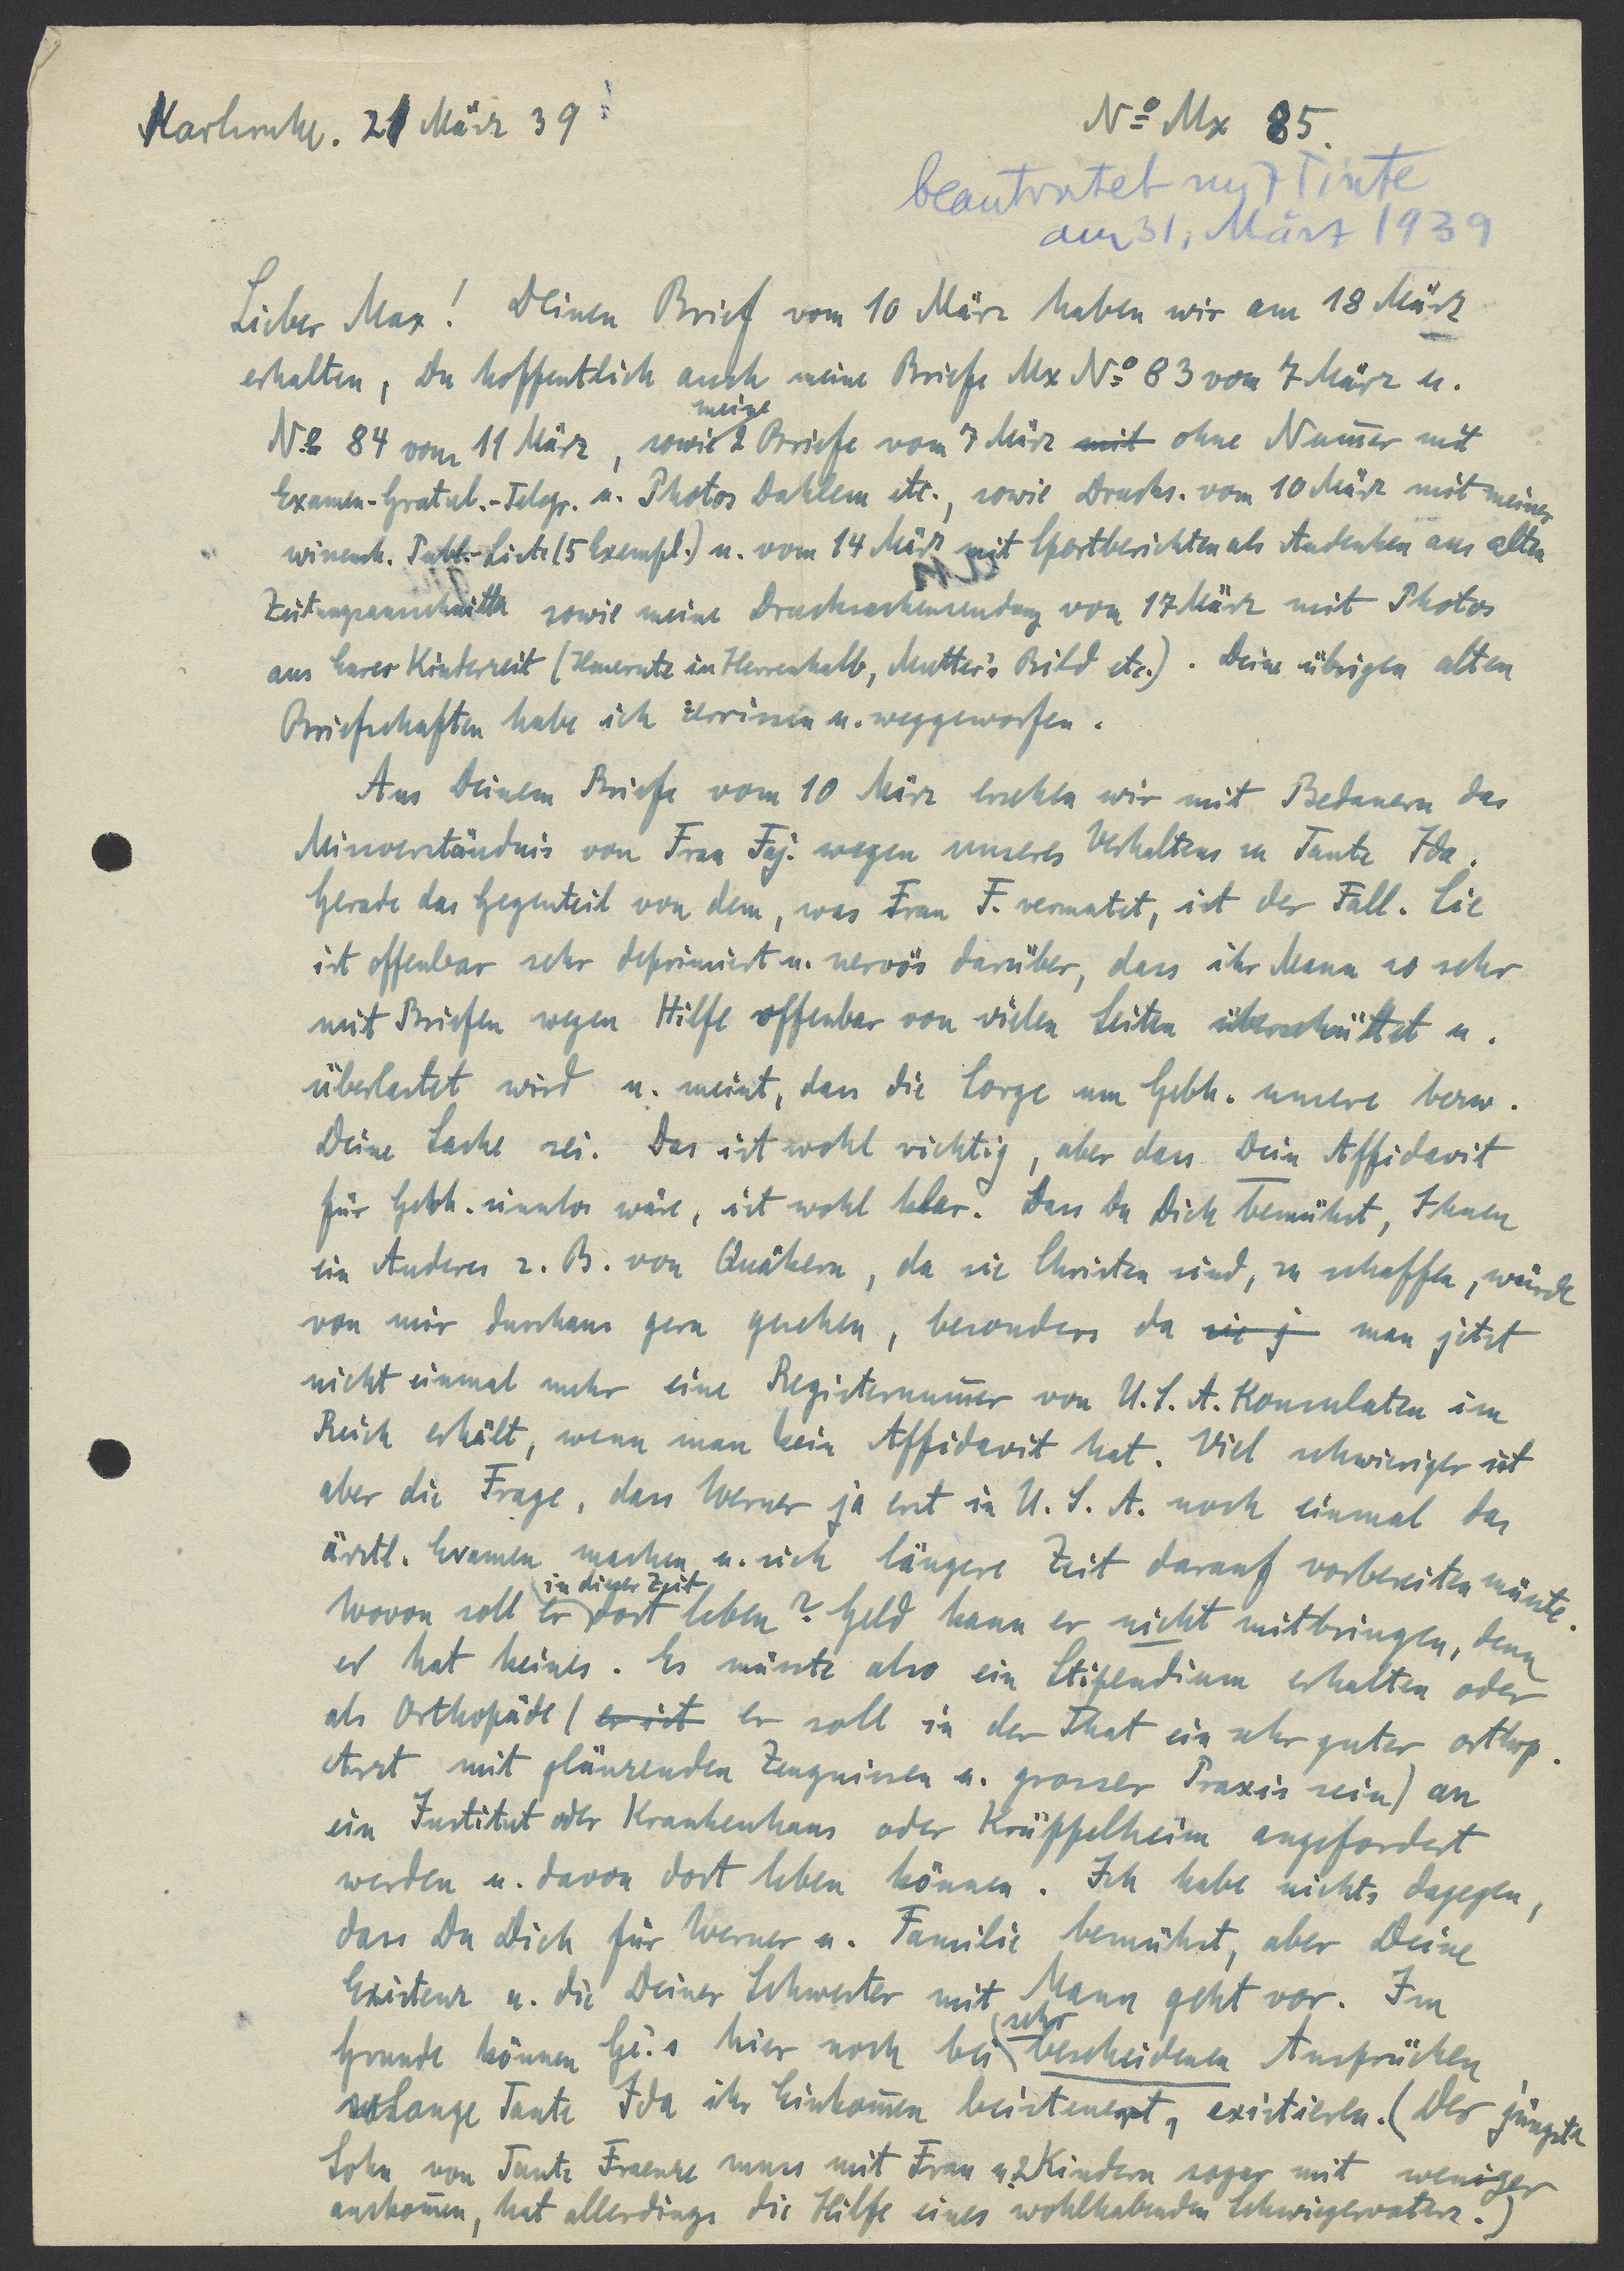 Karlsruhe. 21 März 39
No Mx 85.
beantwortet mit Tinte
am 31. März 1939
Lieber Max! Deinen Brief vom 10 März haben wir am 18 März
erhalten, Du hoffentlich auch meine Briefe Mx No 83 vom 7 März u.
No 84 vom 11 März, sowie meine 2 Briefe vom 7 März mit ohne Num̅er mit
Examen-Gratul.-Telegr. u. Photos Dahlem etc., sowie Drucks. vom 10 März mit meiner
wissensch. Publ.-Liste (5 Exempl.) u. vom 14 März mit Sportberichten als Andenken aus alten
Zeitungsausschnitte sowie meine Drucksachensendung vom 17 März mit Photos
aus Eurer Kinderzeit ( in Herrenhalb, Mutter's Bild etc.). Deine übrigen alten
Briefschaften habe ich zerrissen u. weggeworfen.
Aus Deinem Briefe vom 10 März ersehen wir mit Bedauern das
Missverständnis von Frau Faj. wegen unseres Verhaltens zu Tante Ida.
Gerade das Gegenteil von dem, was Frau F. vermutet, ist der Fall. Sie
ist offenbar sehr deprimiert u. nervös darüber, dass ihr Mann so sehr
mit Briefen wegen Hilfe offenbar von vielen Seiten überschüttet u.
überlastet wird u. meint, dass die Sorge um Gebh. unsere bezw.
Deine Sache sei. Das ist wohl richtig, aber dass Dein Affidavit
für Gebh. sinnlos wäre, ist wohl klar. Dass Du Dich bemühst, Ihnen
ein Anderes z. B. von Quäkern, da sie Christen sind, zu schaffen, würde
von mir durchaus gern gesehen, besonders da sie j man jetzt
nicht einmal mehr eine Registernum̅er von U.S.A. Konsulaten im
Reich erhält, wenn man kein Affidavit hat. Viel schwieriger ist
aber die Frage, dass Werner ja erst in U.S.A. noch einmal das
ärztl. Examen machen u. sich längere Zeit darauf vorbereiten müsste.
Wovon soll er in dieser Zeit dort leben? Geld kann er nicht mitbringen, denn
er hat keines. Es müsste also ein Stipendium erhalten oder
als Orthopäde (er ist er soll in der That ein sehr guter orthop.
Arzt mit glänzenden Zeugnissen u. grosser Praxis sein) an
ein Institut oder Krankenhaus oder Krüppelheim angefordert
werden u. davon dort leben können. Ich habe nichts dagegen,
dass Du Dich für Werner u. Familie bemühst, aber Deine
Existenz u. die Deiner Schwester mit Mann geht vor. Im
Grunde können Ge.'s hier noch bei sehr bescheidenen Ansprüchen
solange Tante Ida ihr Einkom̅en beisteuert, existieren. (Der jüngste
Sohn von Tante Fraenze muss mit Frau u. 2 Kindern sogar mit weniger
auskom̅en, hat allerdings die Hilfe eines wohlhabenden Schwiegervaters.)